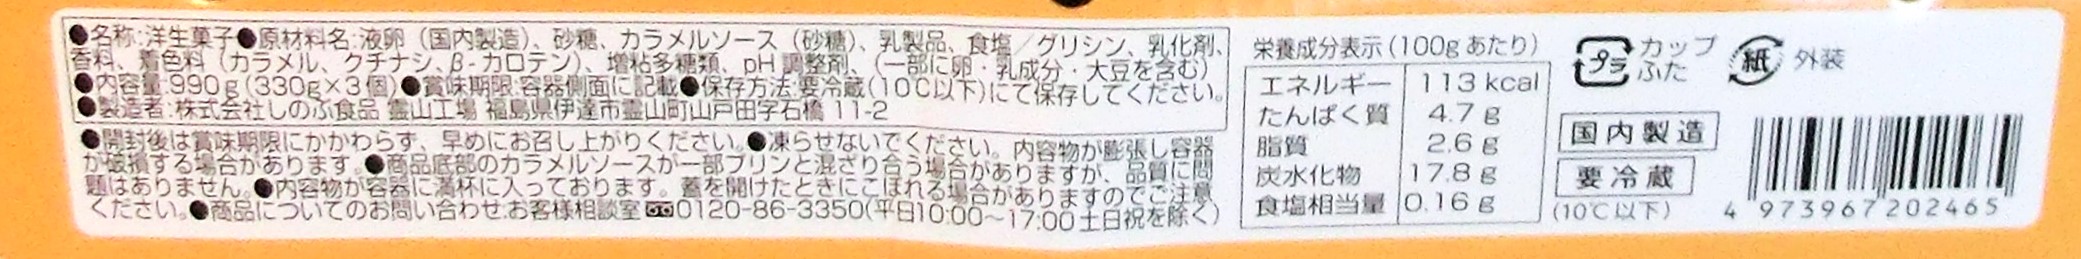 ●名称:洋生菓子●原材料名:液卵（国内製造）、砂糖、カラメルソース（砂糖）、乳製品、食塩／グリシン、乳化剤、
香料、着色料（カラメル、クチナシ、β-カロテン）、増粘多糖類、pH調整剤、（一部に卵・乳成分・大豆を含む）
●内容量:990g(330g×3個)●賞味期限:容器側面に記載●保存方法:要冷蔵(10℃以下)にて保存してください。
●製造者:株式会社しのぶ食品 霊山工場 福島県伊達市霊山町山戸田字石橋 11-2
●開封後は賞味期限にかかわらず、早めにお召し上がりください。●凍らせないでください。内容物が膨張し容器
が破損する場合があります。●商品底部のカラメルソースが一部プリンと混ざり合う場合がありますが、品質に問
題はありません。●内容物が容器に満杯に入っております。蓋を開けたときにこぼれる場合がありますのでご注意
ください。●商品についてのお問い合わせ:お客様相談室 0120-86-3350(平日10:00～17:00土日祝を除く)
栄養成分表示(100gあたり)
エネルギー 113 kcal
たんぱく質 4.7 g
脂質 2.6 g
炭水化物 17.8 g
食塩相当量 0.16 g
プラ カップ
ふた
紙 外装
国内製造
要冷蔵
(10℃以下)
4 973967 202465